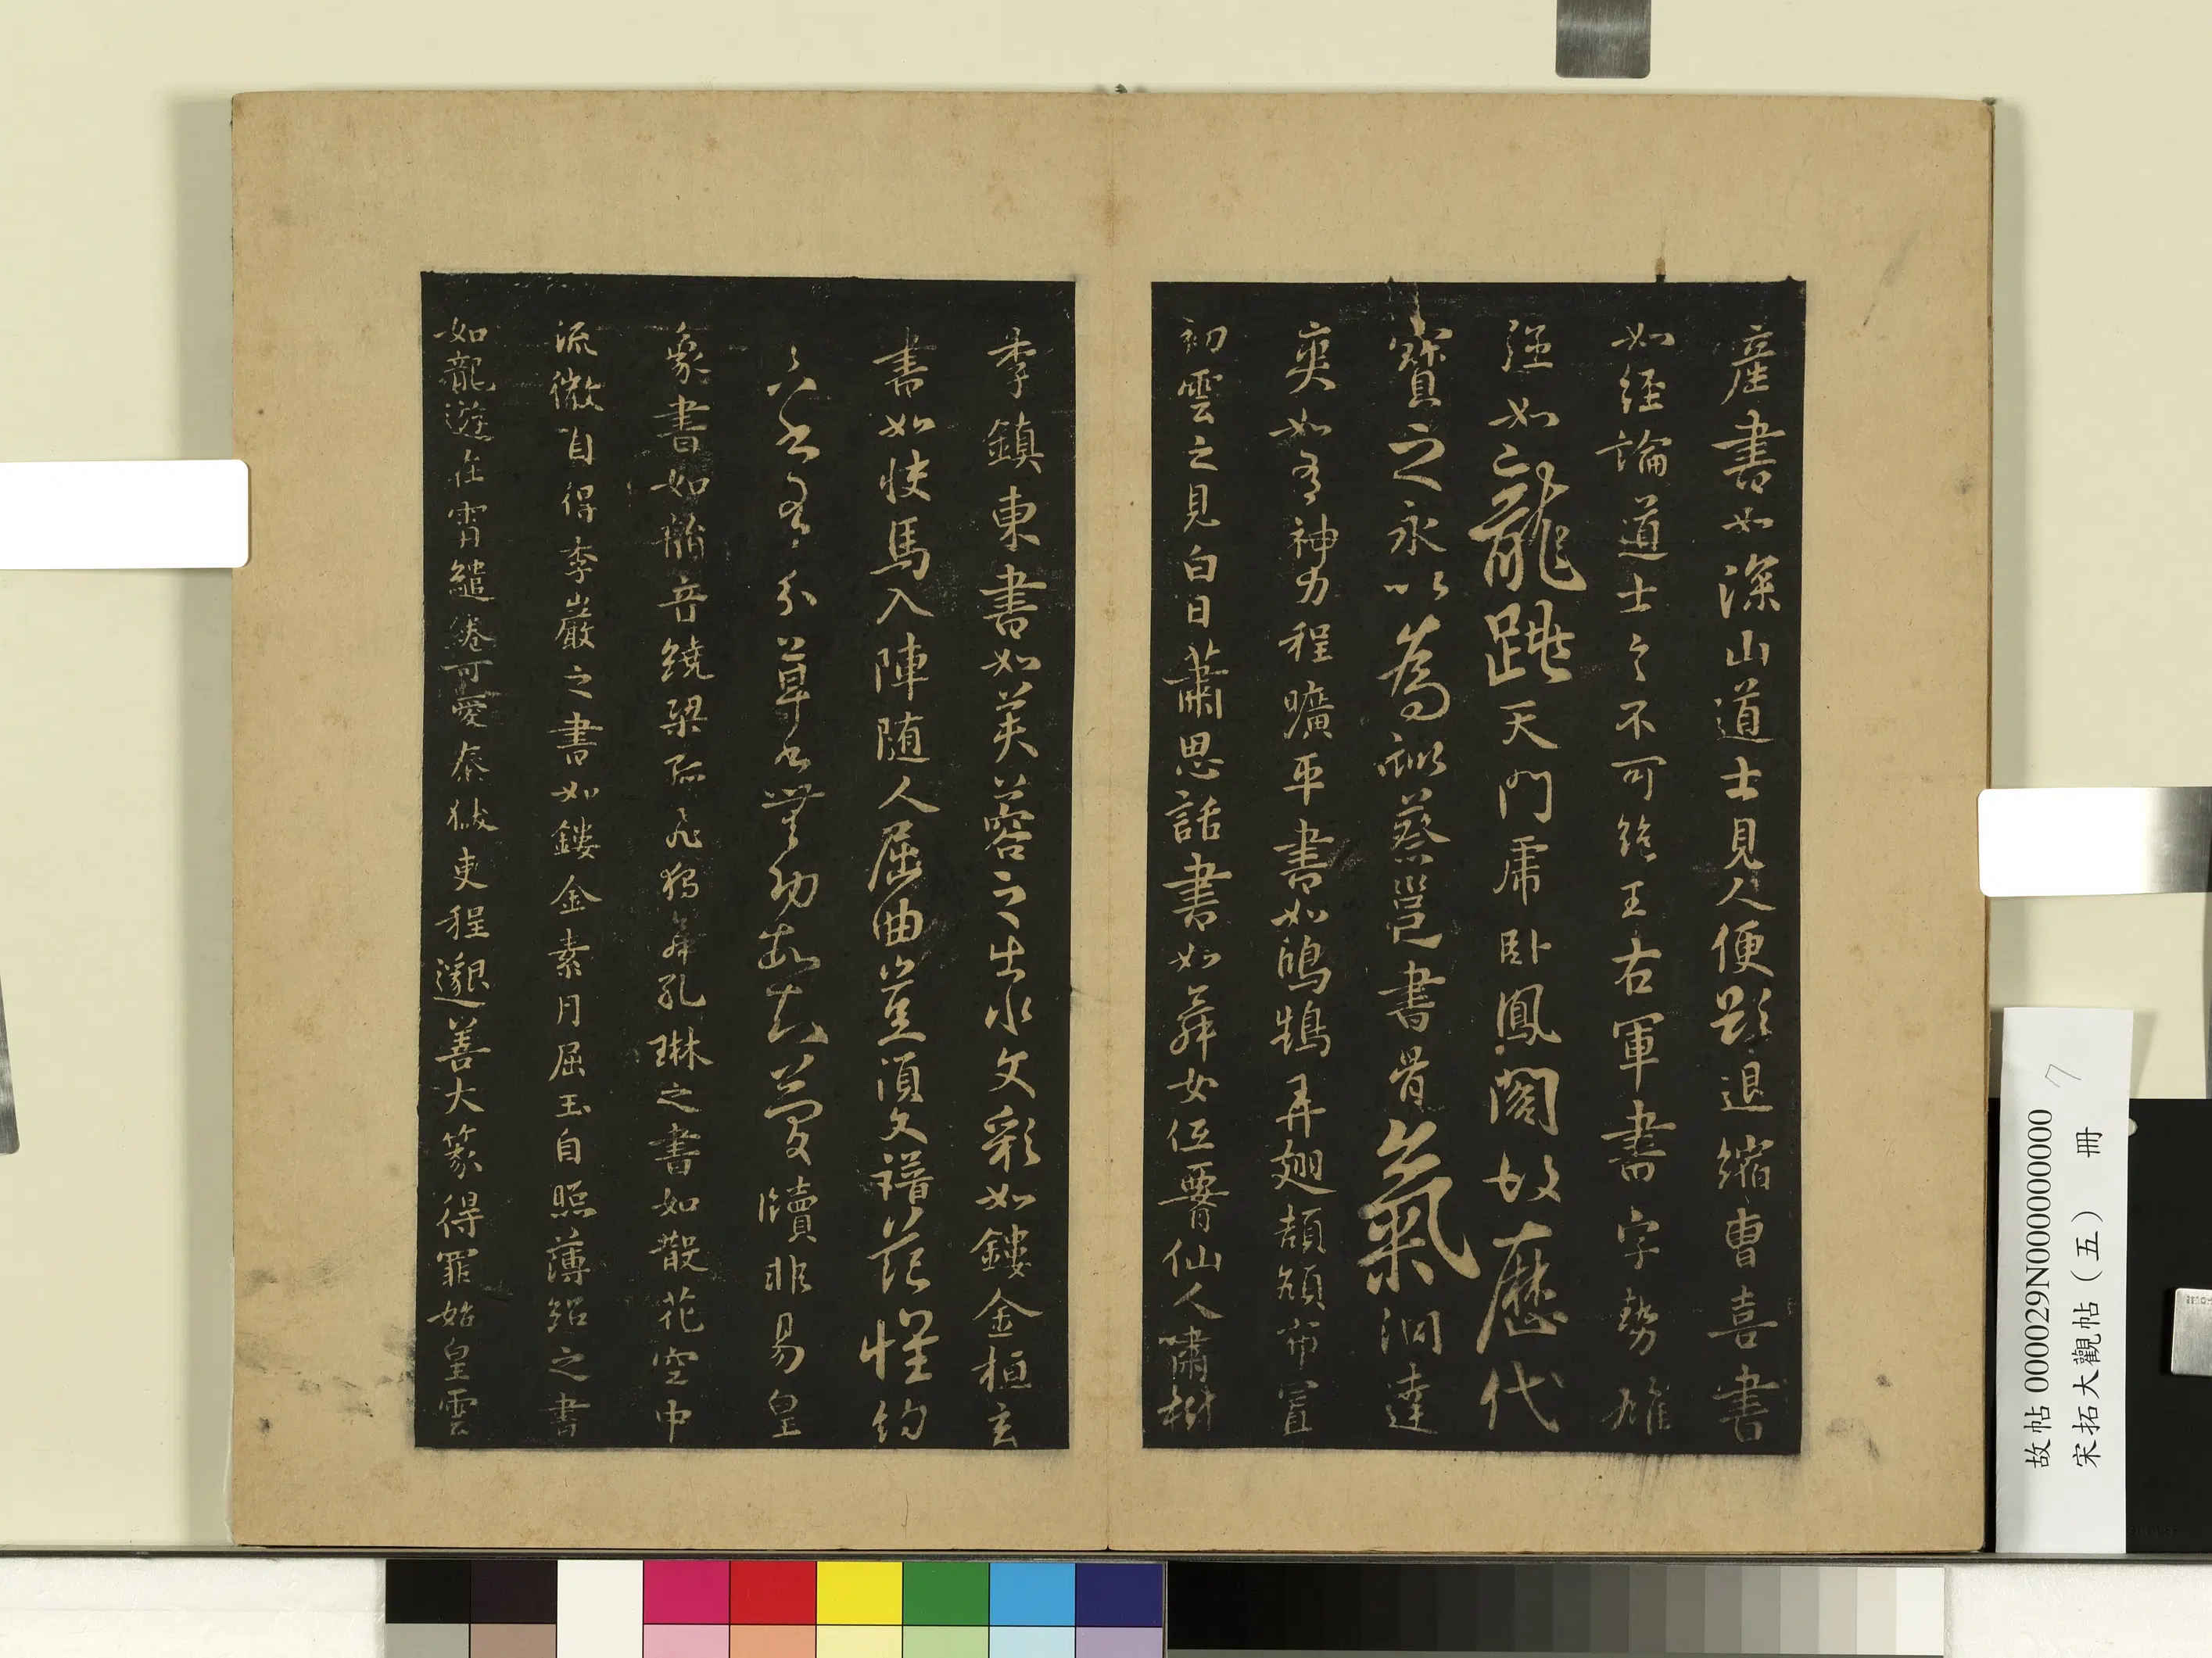 産書如深山道士見人便欲退縮曹喜書
如經論道士言不可絶王右軍書字勢雄
强如龍跳天門虎卧鳳閣故歷代
寶之永以為訓蔡邕書骨氣洞達
爽如有神力程曠平書如鴻鵠弄翅頡頏布置
初雲之見白日蕭思話書如舞女低腰仙人嘯樹
李鎮東書如芙蓉之出水文彩如鏤金桓玄
書如快馬入陣随人屈曲豈須文譜范懷約
象書如 音繞梁孤飛獨舞孔琳之書如散花空中
流徽自得李巖之書如鏤金素月屈玉自照薄紹之書
如龍遊在霄繾綣可愛秦獄吏程邈善大篆得罪始皇雲
故帖 000029N000000000
宋拓大觀帖(五) 冊
7